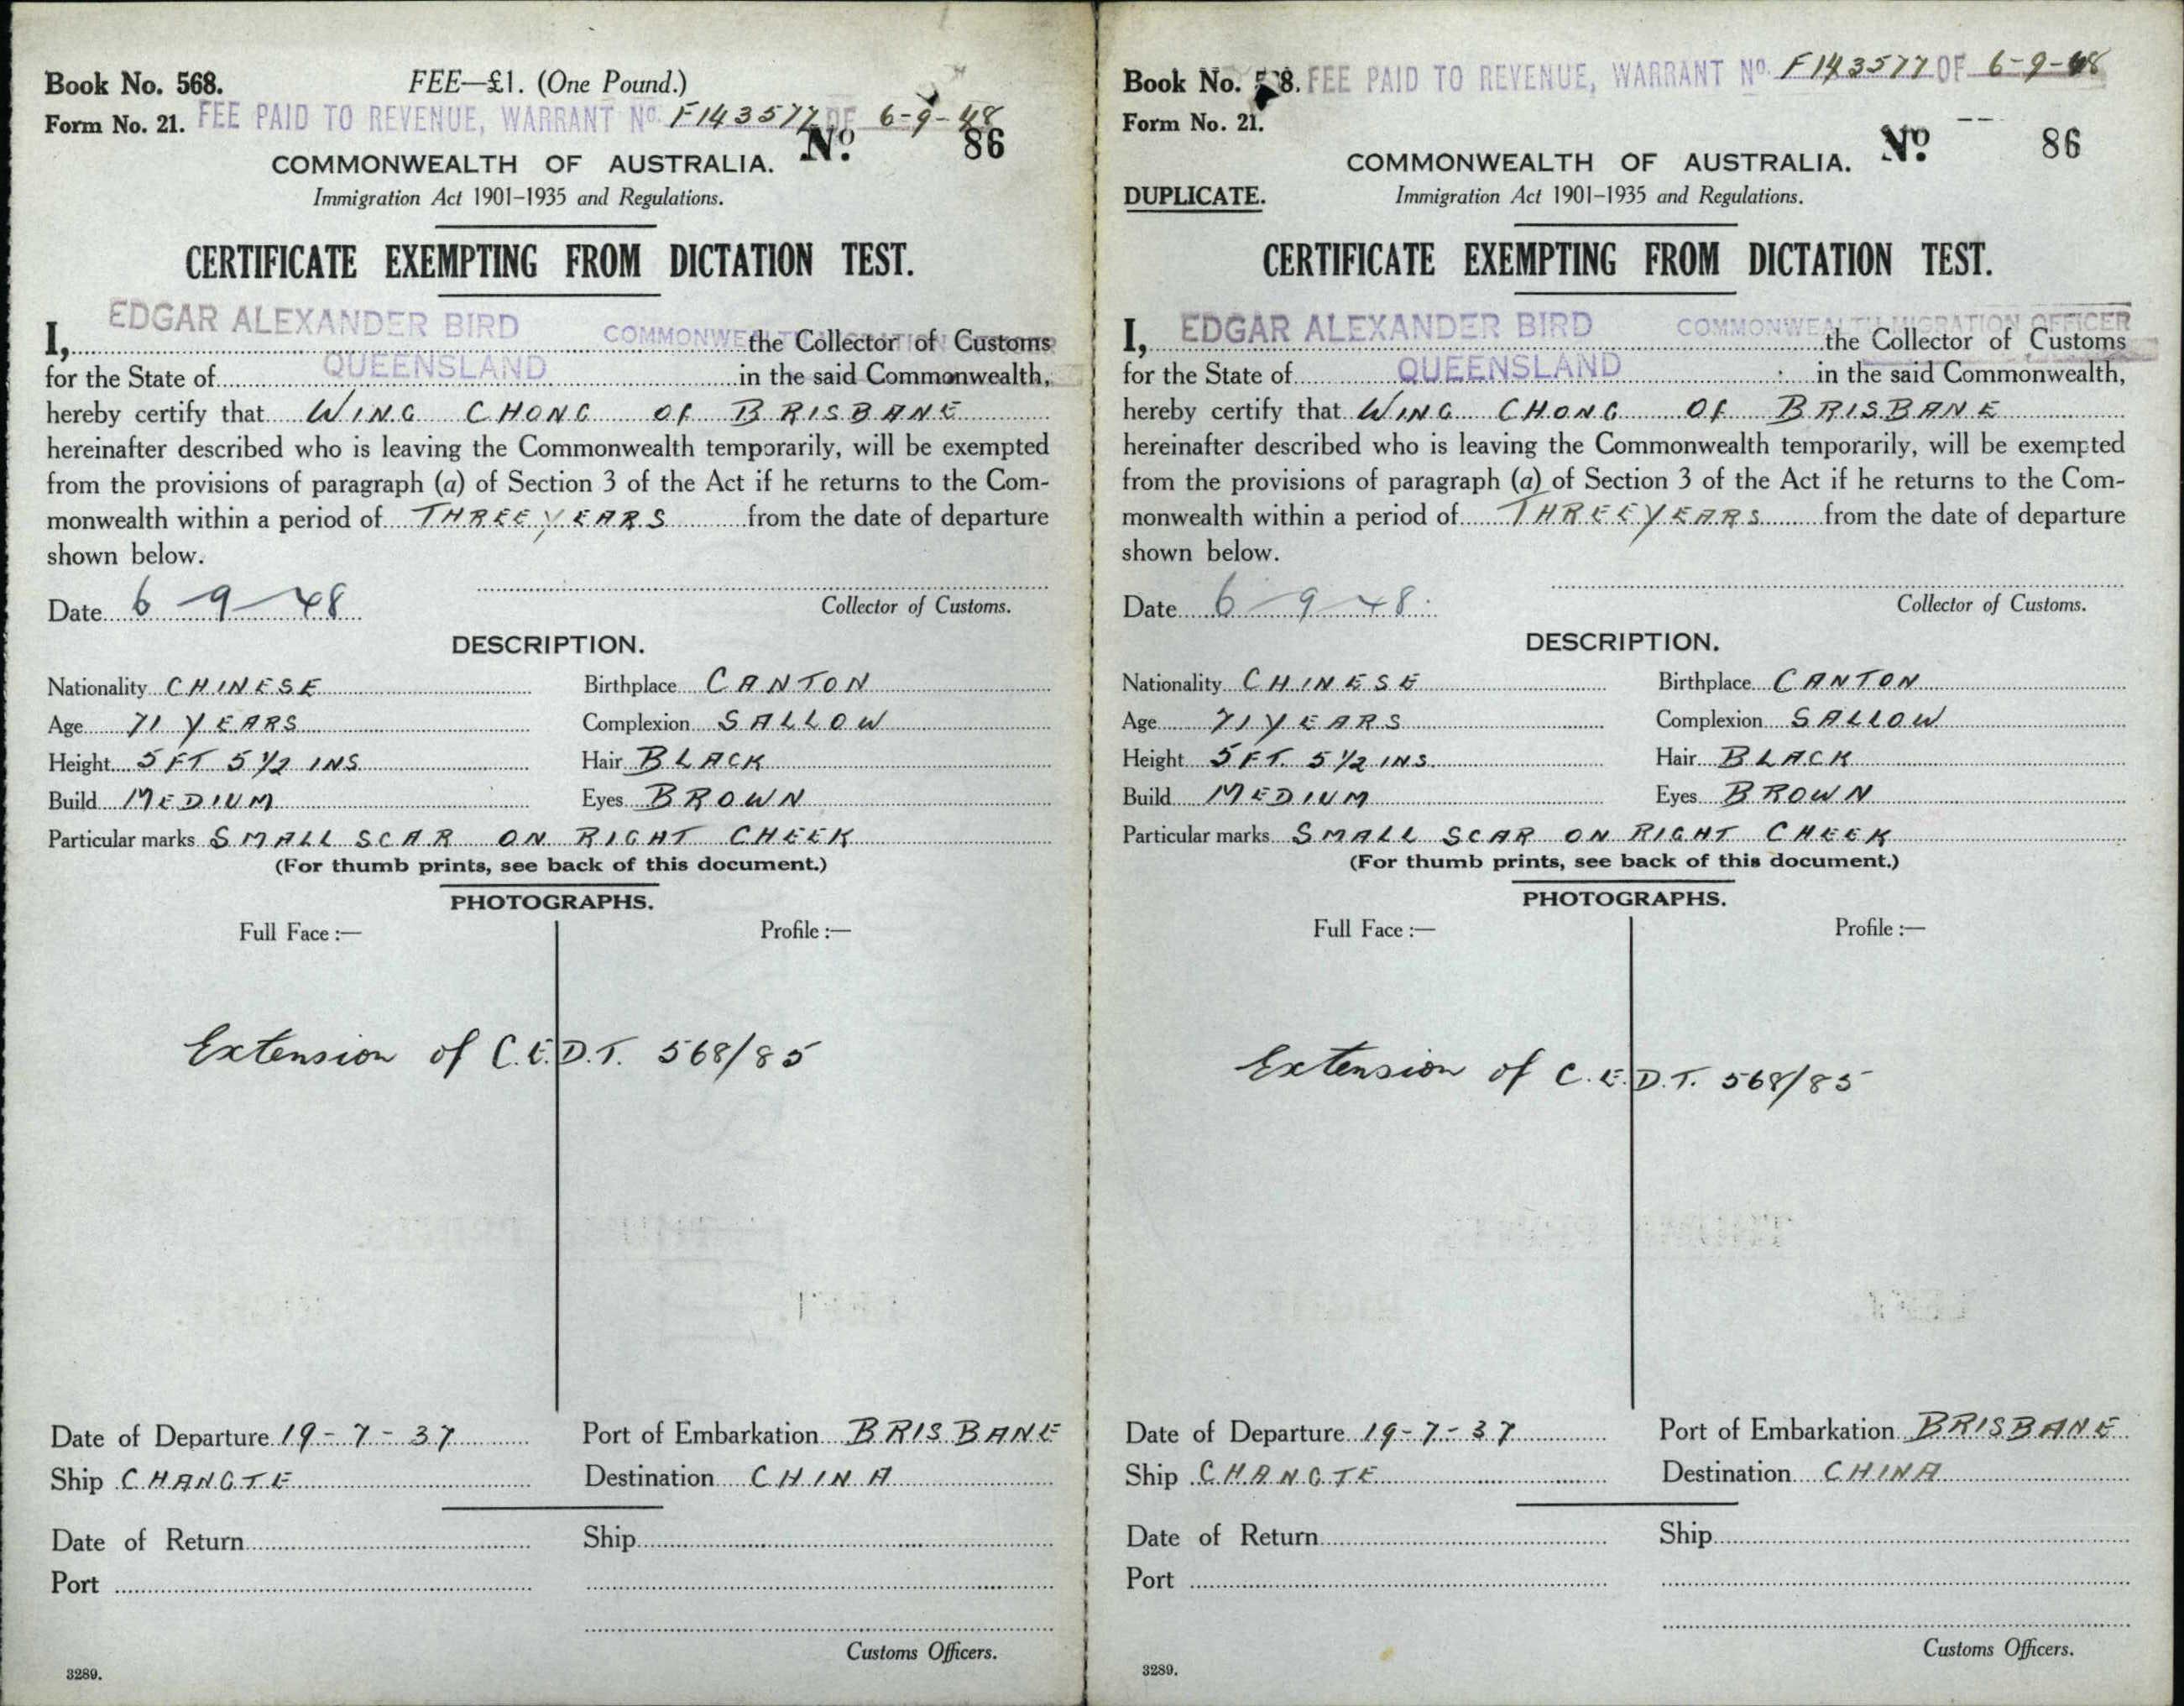 Book No. 568.
FEE—£1. (One Pound.)
Form No. 21.
FEE PAID TO REVENUE, WARRANT No. F143577 OF 6-9-48
No. 86
COMMONWEALTH OF AUSTRALIA.
Immigration Act 1901-1935 and Regulations.
CERTIFICATE EXEMPTING FROM DICTATION TEST.
EDGAR ALEXANDER BIRD COMMONWEALTH
I, the Collector of Customs
QUEENSLAND
for the State of in the said Commonwealth,
hereby certify that WING CHONG OF BRISBANE
hereinafter described who is leaving the Commonwealth temporarily, will be exempted
from the provisions of paragraph (a) of Section 3 of the Act if he returns to the Com-
monwealth within a period of THREE YEARS from the date of departure
shown below.
Date 6-9-48
Collector of Customs.
DESCRIPTION.
Nationality CHINESE Birthplace CANTON
Age 71 YEARS Complexion SALLOW
Height 5 FT 5 1/2 INS Hair BLACK
Build MEDIUM Eyes BROWN
Particular marks SMALL SCAR ON RIGHT CHEEK
(For thumb prints, see back of this document.)
PHOTOGRAPHS.
Full Face :— Profile :—
Extension of C.E.D.T. 568/85
Date of Departure 19-7-37 Port of Embarkation BRISBANE
Ship CHANGTE Destination CHINA
Date of Return Ship
Port
Customs Officers.
3289.
Book No. 8. FEE PAID TO REVENUE, WARRANT No. F143577 OF 6-9-48
Form No. 21.
No. 86
COMMONWEALTH OF AUSTRALIA.
DUPLICATE.
Immigration Act 1901-1935 and Regulations.
CERTIFICATE EXEMPTING FROM DICTATION TEST.
EDGAR ALEXANDER BIRD COMMONWEALTH MIGRATION OFFICER
I, the Collector of Customs
QUEENSLAND
for the State of in the said Commonwealth,
hereby certify that WING CHONG OF BRISBANE
hereinafter described who is leaving the Commonwealth temporarily, will be exempted
from the provisions of paragraph (a) of Section 3 of the Act if he returns to the Com-
monwealth within a period of THREE YEARS from the date of departure
shown below.
Date 6-9-48.
Collector of Customs.
DESCRIPTION.
Nationality CHINESE Birthplace CANTON
Age 71 YEARS Complexion SALLOW
Height 5 FT. 5 1/2 INS. Hair BLACK
Build MEDIUM Eyes BROWN
Particular marks SMALL SCAR ON RIGHT CHEEK
(For thumb prints, see back of this document.)
PHOTOGRAPHS.
Full Face :— Profile :—
Extension of C.E.D.T. 568/85
Date of Departure 19-7-37 Port of Embarkation BRISBANE
Ship CHANGTE Destination CHINA
Date of Return Ship
Port
Customs Officers.
3289.